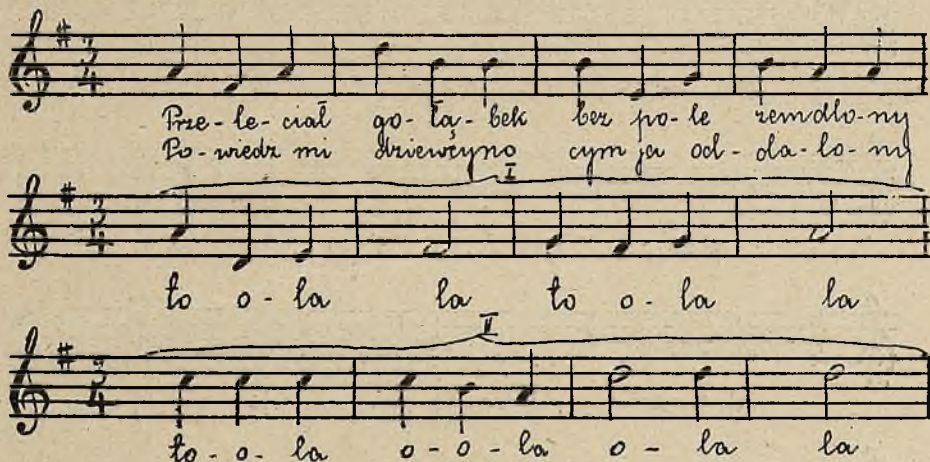 3 4
Prze-le-ciał go-łą-bek bez po-le zemdlo-ny
Po-wiedz mi dziewcyno cym ja od-da-lo-ny
I
3 4
to o-la la to o-la la
II
3 4
to-o-la o-o-la o-la la